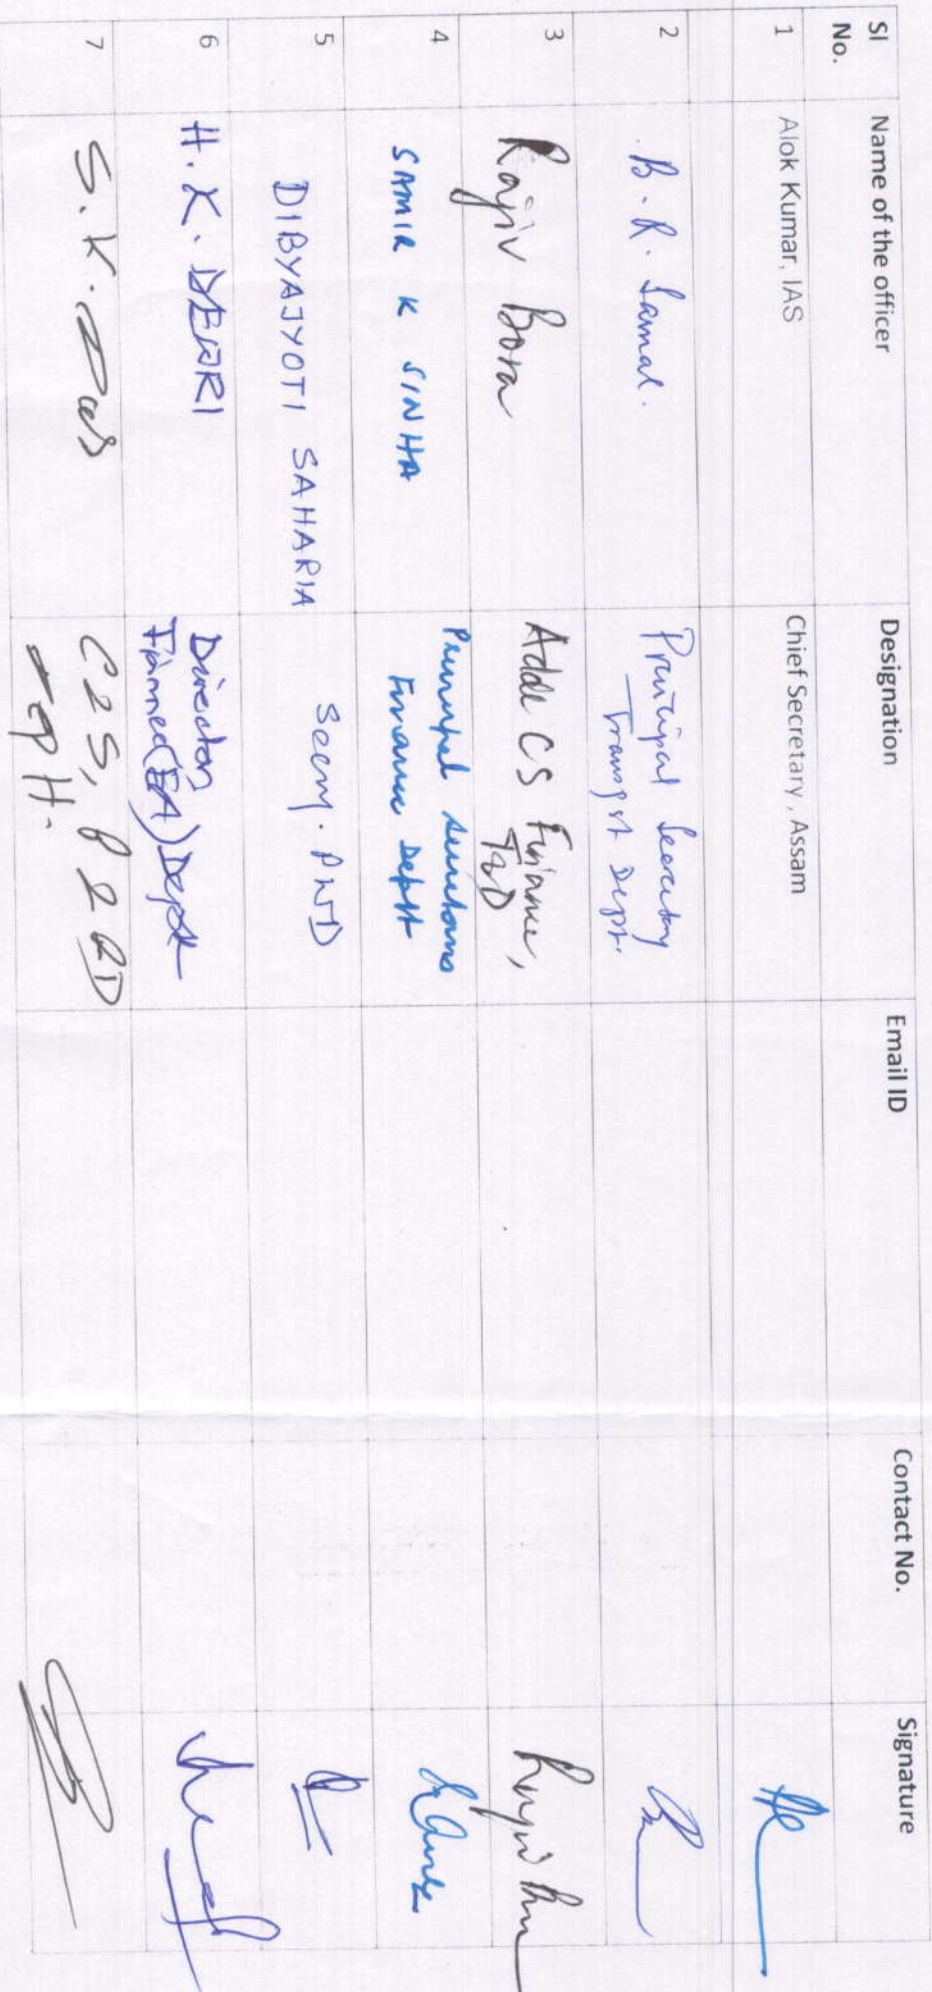 Sl No. Name of the officer Designation Email ID Contact No. Signature
1 Alok Kumar, IAS Chief Secretary, Assam
2 B. R. Samal. Principal Secretary
Transpt Deptt.
3 Rajiv Bora Addl CS Finance,
4 SAMIR K SINHA Principal
Finance Deptt
5 DIBYAJYOTI SAHARIA Secy. PWD
6 H. K. DEORI Director
Dept
7 S. K. Das